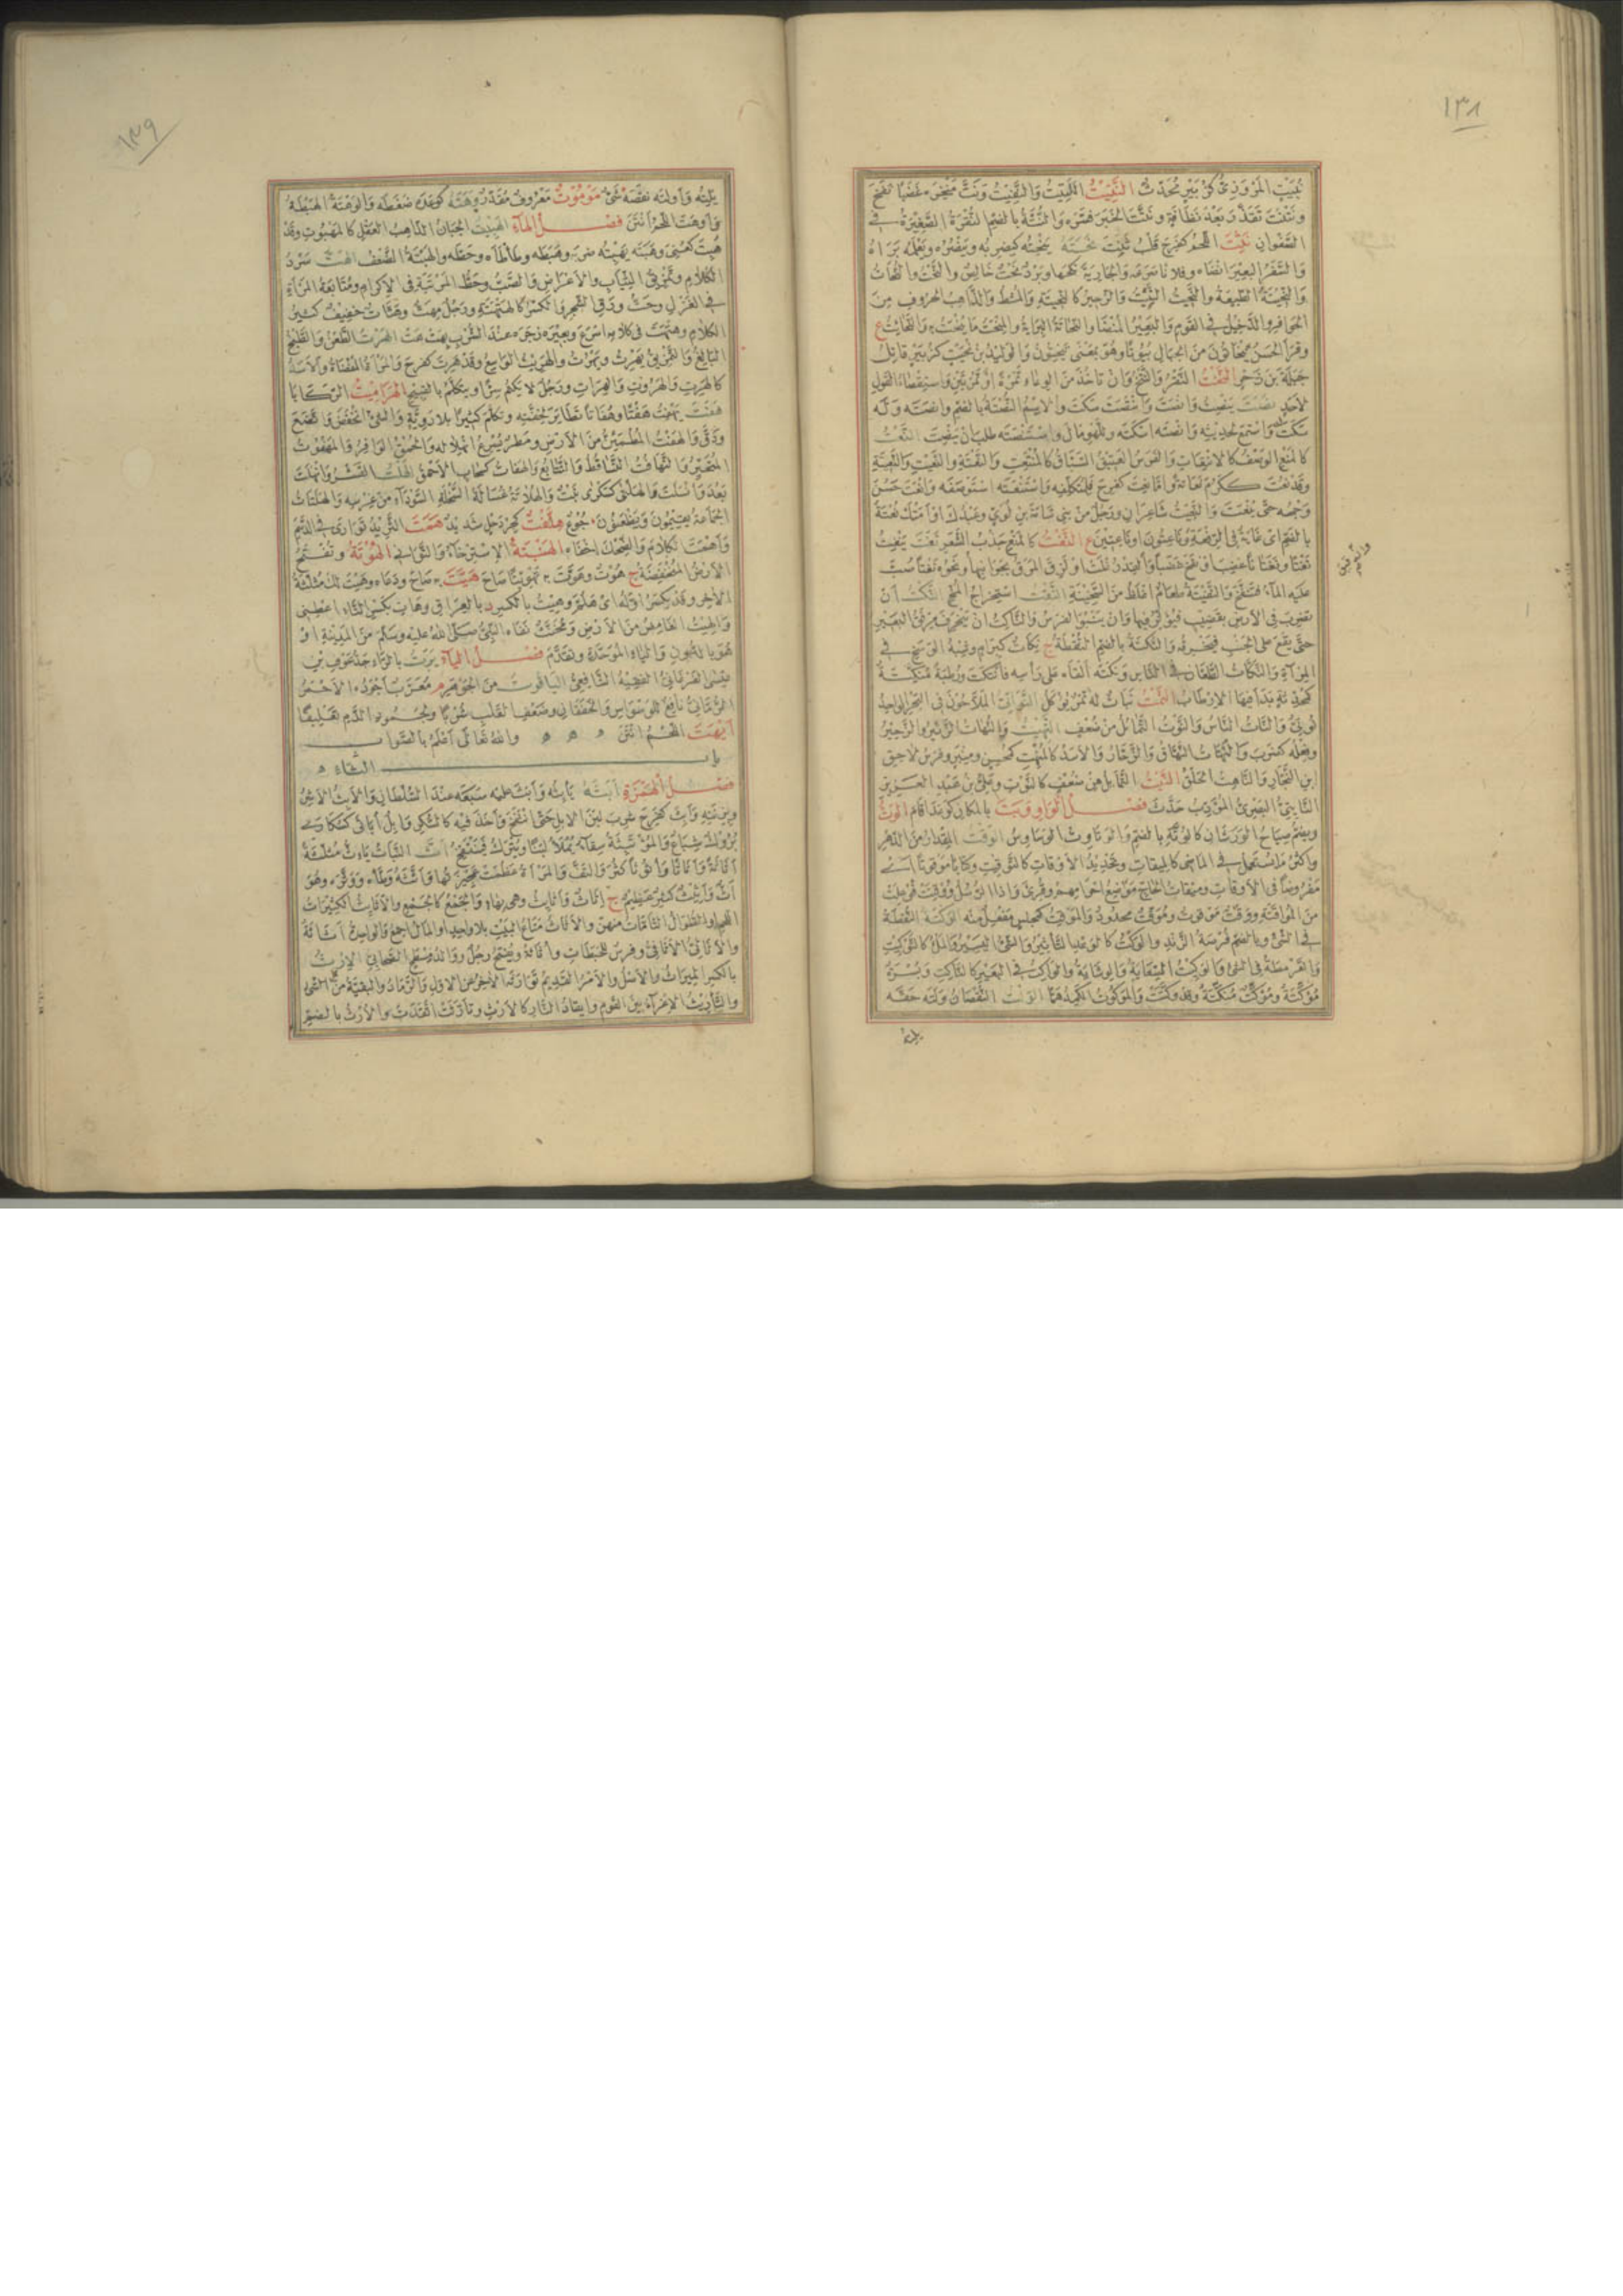 ١٣٨
نُبَيْتٍ المَرْوَذِيُّ كَزُبَيْرٍ مُحَدِّثٌ النَّتِيتُ الكَتِيتُ وَالنَّفِيتُ وَنَتَّ مَنْخِرُهُ غَضَبًا نَفَخَ
وَتَنَتَّتَ تَقَذَّرَ بَعْدَ نَظَافَةٍ وَنَتَّتَ الخَبَرَ فَسَّرَهُ وَالنُّتَّةُ بِالضَّمِّ النُّقْرَةُ الصَّغِيرَةُ فِي
الصَّفْوَانِ نَثِتَ اللَّحْمُ كَفَرِحَ قَلْبُ ثَنِتَ نَحَتَهُ يَنْحِتُهُ كَيَضْرِبُهُ وَيَنْصُرُهُ وَيَعْلَمُهُ بَرَاهُ
وَالسَّفَرُ البَعِيرَ انْضَاهُ وَفُلَانًا صَرَعَهُ وَالجَارِيَةَ نَكَحَهَا وَبَرْدٌ نَحْتٌ خَالِصٌ وَالنَّحْتُ وَالنِّحَاتُ
وَالنَّحِيتَةُ الطَّبِيعَةُ وَالنَّحِيتُ وَالزَّحِيرُ كَالنَّحِيتَةِ وَالمُشْطُ وَالذَّاهِبُ الحُرُوفِ مِنَ
الحَوَافِرِ وَالدَّخِيلُ فِي القَوْمِ وَالبَعِيرُ المُنْضَى وَالنُّحَاتَةُ البُرَايَةُ وَالمِنْحَتُ مَا يُنْحَتُ بِهِ وَالنَّحَائِتُ ع
وَقَرَأَ الحَسَنُ تَنْحَاتُونَ مِنَ الجِبَالِ بُيُوتًا وَهُوَ بِمَعْنَى تَنْحِتُونَ وَالوَلِيدُ بْنُ نُحَيْتٍ كَزُبَيْرٍ قَاتِلُ
جَبَلَةَ بْنِ زَحْرٍ النَّخْتُ النَّقْرُ وَالنَّتْخُ وَأَنْ تَأْخُذَ مِنَ الوِعَاءِ تَمْرَةً أَوْ تَمْرَتَيْنِ وَاسْتِقْصَاءُ القَوْلِ
لِأَحَدٍ نَصَتَ يَنْصِتُ وَأَنْصَتَ وَانْتَصَتَ سَكَتَ وَالاِسْمُ النُّصْتَةُ بِالضَّمِّ وَأَنْصَتَهُ وَلَهُ
سَكَتَ لَهُ وَاسْتَمَعَ لِحَدِيثِهِ وَأَنْصَتَهُ أَسْكَتَهُ وَلِلَّهْوِ مَالَ وَاسْتَنْصَتَهُ طَلَبَ أَنْ يَنْصِتَ النَّعْتُ
كَالمَنْعِ الوَصْفُ كَالاِنْتِعَاتِ وَالفَرَسُ العَتِيقُ السَّبَّاقُ كَالمُنْتَعِتِ وَالنَّعْتَةِ وَالنَّعِيتِ وَالنَّعِيتَةِ
وَقَدْ نَعُتَ كَكَرُمَ نَعَاتَةً وَأَمَّا نَعِتَ كَفَرِحَ فَلِمُتَكَلِّفِهِ وَاسْتَنْعَتَهُ اسْتَوْصَفَهُ وَأَنْعَتَ حَسُنَ
وَجْهُهُ حَتَّى يُنْعَتَ وَالنَّعِيتُ شَاعِرَانِ وَرَجُلٌ مِنْ بَنِي سَامَةَ بْنِ لُؤَيٍّ وَعَبْدُكَ أَوْ أَمَتُكَ نُعْتَةٌ
بِالضَّمِّ أَيْ غَايَةٌ فِي الرِّفْعَةِ وَنَاعِتُونَ أَوْ نَاعِتِينَ ع النَّغْتُ كَالمَنْعِ جَذْبُ الشَّعَرِ نَفَتَ يَنْفِتُ
نَفْتًا وَنَفَتَانًا غَضِبَ أَوْ نَفَخَ غَضَبًا وَالقِدْرُ غَلَتْ أَوْ لَزِقَ المَرَقُ بِجَوَانِبِهَا وَنَحْوُهُ نَفْتًا صُبَّ
عَلَيْهِ المَاءُ فَتَنَفَّخَ وَالنَّفِيتَةُ طَعَامٌ أَغْلَظُ مِنَ السَّخِينَةِ النَّقْتُ اسْتِخْرَاجُ المُخِّ النَّكْتُ أَنْ
تَضْرِبَ فِي الأَرْضِ بِقَضِيبٍ فَيُؤَثِّرَ فِيهَا وَأَنْ يَنْبُوَ الفَرَسُ وَالنَّاكِتُ أَنْ يَنْحَرِفَ مِرْفَقُ البَعِيرِ
حَتَّى يَقَعَ عَلَى الجَنْبِ فَيَخْرِقَهُ وَالنُّكْتَةُ بِالضَّمِّ النُّقْطَةُ ج نِكَاتٌ كَبِرَامٍ وَشِبْهُ الوَسَخِ فِي
المِرْآةِ وَالنَّكَّاتُ الطَّعَّانُ فِي النَّاسِ وَنَكَتَهُ أَلْقَاهُ عَلَى رَأْسِهِ فَانْتَكَتَ وَرُطَبَةٌ مُنَكِّتَةٌ
كَمُحَدِّثَةٍ بَدَا فِيهَا الاِرْطَابُ النَّمْتُ نَبَاتٌ لَهُ ثَمَرٌ يُؤْكَلُ النَّوَاتِيُّ المَلَّاحُونَ فِي البَحْرِ الوَاحِدُ
نُوتِيٌّ وَالنَّاتُ النَّاسُ وَالنَّوْتُ التَّمَايُلُ مِنْ ضُعْفٍ النَّهِيتُ وَالنُّهَاتُ الزَّئِيرُ وَالزَّحِيرُ
وَفِعْلُهُ كَضَرَبَ وَالنَّهَّاتُ النَّهَّاقُ وَالزَّحَّارُ وَالأَسَدُ كَالمُنْهِتِ كَمُحْسِنٍ وَمِنْبَرٍ وَفَرَسُ لَاحِقِ
ابْنِ النَّجَّارِ وَالنَّاهِتُ الحَلْقُ النَّيْتُ التَّمَايُلُ مِنْ ضُعْفٍ كَالنَّوْتِ وَعَلِيُّ بْنُ عَبْدِ العَزِيزِ
النَّاتِيتِيُّ البَصْرِيُّ المُؤَدِّبُ حَدَّثَ فَصْلُ الوَاوِ وَبَتَ بِالمَكَانِ كَوَعَدَ أَقَامَ الوَتُّ
وَيُضَمُّ صِيَاحُ الوَرَشَانِ كَالوُتَّةِ بِالضَّمِّ وَالوَتَاوِتُ الوَسَاوِسُ الوَقْتُ المِقْدَارُ مِنَ الدَّهْرِ
وَأَكْثَرُ مَا يُسْتَعْمَلُ فِي المَاضِي كَالمِيقَاتِ وَتَحْدِيدُ الأَوْقَاتِ كَالتَّوْقِيتِ وَكِتَابًا مَوْقُوتًا أَيْ
مَفْرُوضًا فِي الأَوْقَاتِ وَمِيقَاتُ الحَاجِّ مَوْضِعُ إِحْرَامِهِمْ وَقُرِئَ وَإِذَا الرُّسُلُ وُقِّتَتْ فُوعِلَتْ
مِنَ المُوَاقَتَةِ وَوَقْتٌ مَوْقُوتٌ وَمُوَقَّتٌ مَحْدُودٌ وَالمَوْقِتُ كَمَجْلِسٍ مَفْعِلٌ مِنْهُ الوَكْتَةُ النُّقْطَةُ
فِي الشَّيْءِ وَبِالضَّمِّ فُرْضَةُ الزَّنْدِ وَالوَكْتُ كَالوَعْدِ التَّأْثِيرُ وَالشَّيْءُ اليَسِيرُ وَالمَلْءُ كَالتَّوْكِيتِ
وَالقَرْمَطَةُ فِي المَشْيِ وَالوَكِيتُ السِّعَايَةُ وَالوِشَايَةُ وَالوَاكِتُ فِي البَعِيرِ كَالنَّاكِتِ وَبُسْرَةٌ
مُوَكِّتَةٌ وَمُوَكِّتٌ مُنَكِّتَةٌ وَقَدْ وَكَّتَتْ وَالمَوْكُوتُ الكَمِدُ هَمًّا الوَلْتُ النُّقْصَانُ وَلَتَهُ حَقَّهُ
يَلِتُهُ
١٣٩
يَلِتُهُ وَأَوْلَتَهُ نَقَصَهُ شَيْءٌ مَوْمُوتٌ مَعْرُوفٌ مُقَدَّرٌ وَهَتَهُ كَوَعَدَهُ ضَغَطَهُ وَالوَهْتَةُ الهَبْطَةُ
وَأَوْهَتَ اللَّحْمُ أَنْتَنَ فَصْلُ الهَاءِ الهَبِيتُ الجَبَانُ الذَّاهِبُ العَقْلِ كَالمَهْبُوتِ وَقَدْ
هُبِتَ كَعُنِيَ وَهَبَتَهُ يَهْبِتُهُ ضَرَبَهُ وَهَبَطَهُ وَطَأْطَأَهُ وَحَطَّهُ وَالهَبْتَةُ الضَّعْفُ الهَتُّ سَرْدُ
الكَلَامِ وَتَمْزِيقُ الثِّيَابِ وَالأَعْرَاضِ وَالصَّبُّ وَحَطُّ المَرْتَبَةِ فِي الإِكْرَامِ وَمُتَابَعَةُ المَرْأَةِ
فِي الغَزْلِ وَحَتُّ وَرَقِ الشَّجَرِ وَالكَسْرُ كَالهَتْهَتَةِ وَرَجُلٌ مِهَتٌّ وَهَتَّاتٌ خَفِيفٌ كَثِيرُ
الكَلَامِ وَهَتْهَتَ فِي كَلَامِهِ أَسْرَعَ وَبَعِيرَهُ زَجَرَهُ عِنْدَ الشُّرْبِ بِهَتْ هَتْ الهَرْتُ الطَّعْنُ وَالطَّبْخُ
البَالِغُ وَالتَّمْزِيقُ يَهْرِتُ وَيَهْرُتُ وَالهَرِيتُ الوَاسِعُ وَقَدْ هَرِتَ كَفَرِحَ وَالمَرْأَةُ المُفْضَاةُ وَالأَسَدُ
كَالهَرِتِ وَالهَرُوتِ وَالهَرَّاتِ وَرَجُلٌ لَا يَكْتُمُ سِرًّا وَيَتَكَلَّمُ بِالقَبِيحِ الهَرَامِيتُ الرَّكَايَا
هَفَتَ يَهْفِتُ هَفْتًا وَهُفَاتًا تَطَايَرَ لِخِفَّتِهِ وَتَكَلَّمَ كَثِيرًا بِلَا رَوِيَّةٍ وَالشَّيْءُ انْخَفَضَ وَاتَّضَعَ
وَدَقَّ وَالهَفْتُ المُطْمَئِنُّ مِنَ الأَرْضِ وَمَطَرٌ يُسْرِعُ انْهِلَالُهُ وَالحُمْقُ الوَافِرُ وَالمَهْفُوتُ
المُتَحَيِّرُ وَالتَّهَافُتُ التَّسَاقُطُ وَالتَّتَابُعُ وَالهَفَاتُ كَسَحَابٍ الأَحْمَقُ الهَلْتُ القَشْرُ وَانْهَلَتَ
يَعْدُو انْسَلَتَ وَالهَلْتَى كَسَكْرَى نَبْتٌ وَالهُلَاتَةُ غُسَالَةُ السَّخْلَةِ السَّوْدَاءِ مِنْ غِرْسِهِ وَالهَلْتَاتُ
الجَمَاعَةُ يُقِيمُونَ وَيَظْعَنُونَ جُوعٌ هِلَّقْتٌ كَجِرْدَحْلٍ شَدِيدٌ هَمَتَ الثَّرِيدُ تَوَارَى فِي الدَّسَمِ
وَأَهْمَتَ الكَلَامَ وَالضَّحِكَ أَخْفَاهُ الهَنْبَتَةُ الاِسْتِرْخَاءُ وَالتَّوَانِي الهُوتَةُ وَتُفْتَحُ
الأَرْضُ المُنْخَفِضَةُ ج هُوَتٌ وَهَوَّتَ بِهِ تَهْوِيتًا صَاحَ هَيَّتَ بِهِ صَاحَ وَدَعَاهُ وَهَيْتَ لَكَ مُثَلَّثَةَ
الآخِرِ وَقَدْ يُكْسَرُ أَوَّلُهُ أَيْ هَلُمَّ وَهِيتُ بِالكَسْرِ د بِالعِرَاقِ وَهَاتِ بِكَسْرِ التَّاءِ أَعْطِنِي
وَالهِيتُ الغَامِضُ مِنَ الأَرْضِ وَمُخَنَّثٌ نَفَاهُ النَّبِيُّ صَلَّى اللّٰهُ عَلَيْهِ وَسَلَّمَ مِنَ المَدِينَةِ أَوْ
هُوَ بِالنُّونِ وَالبَاءِ المُوَحَّدَةِ وَتَقَدَّمَ فَصْلُ اليَاءِ يَرْتُ بِالرَّاءِ جَدُّ عَوْفِ بْنِ
عِيسَى الفَرْغَانِيُّ الفَقِيهُ الشَّافِعِيُّ اليَاقُوتُ مِنَ الجَوَاهِرِ م مُعَرَّبٌ أَجْوَدُهُ الأَحْمَرُ
الرُّمَّانِيُّ نَافِعٌ لِلْوَسْوَاسِ وَالخَفَقَانِ وَضُعْفِ القَلْبِ شُرْبًا وَلِجُمُودِ الدَّمِ تَعْلِيقًا
أَيْهَتَ اللَّحْمُ أَنْتَنَ وَاللّٰهُ تَعَالَى أَعْلَمُ بِالصَّوَابِ
بَابُ الثَّاءِ
فَصْلُ الهَمْزَةِ أَبَثَهُ يَأْبِثُهُ وَأَبَثَ عَلَيْهِ سَبَعَهُ عِنْدَ السُّلْطَانِ وَالأَبِثُ الأَشِرُ
وَزِنَتِهِ وَأَبِثَ كَفَرِحَ شَرِبَ لَبَنَ الإِبِلِ حَتَّى انْتَفَخَ وَأَخَذَ فِيهِ كَالسُّكْرِ وَإِبِلٌ أَبَاثَى كَسَكَارَى
بُرُوكٌ شِبَاعٌ وَالمُؤْتَبِثَةُ سِقَاءٌ يُمْلَأُ لَبَنًا وَيُتْرَكُ فَيَنْتَفِخُ أَثَّ النَّبَاتُ يَأِثُّ مُثَلَّثَةً
أَثَاثَةً وَأَثَاثًا وَأُثُوثًا كَثُرَ وَالتَفَّ وَالمَرْأَةُ عَظُمَتْ عَجِيزَتُهَا وَأَثَّثَهُ وَطَّأَهُ وَوَثَّرَهُ وَهُوَ
أَثٌّ وَأَثِيثٌ كَثِيرٌ عَظِيمٌ ج إِثَاثٌ وَأَثَائِثُ وَهِيَ بِهَاءٍ وَالجَمْعُ كَالجَمْعِ وَالأَثَائِثُ الكَثِيرَاتُ
اللَّحْمِ أَوِ الطِّوَالُ التَّامَّاتُ مِنْهُنَّ وَالأَثَاثُ مَتَاعُ البَيْتِ بِلَا وَاحِدٍ أَوِ المَالُ أَجْمَعُ وَالوَاحِدَةُ أَثَاثَةٌ
وَالأَثَاثِيُّ الأَثَافِيُّ وَفَرَسٌ لِلْحَبَطَاتِ وَأُثَاثَةُ وَيُفْتَحُ رَجُلٌ وَوَالِدُ مِسْطَحٍ الصَّحَابِيِّ الإِرْثُ
بِالكَسْرِ المِيرَاثُ وَالأَصْلُ وَالأَمْرُ القَدِيمُ تَوَارَثَهُ الآخِرُ عَنِ الأَوَّلِ وَالرَّمَادُ وَالبَقِيَّةُ مِنَ الشَّيْءِ
وَالتَّأْرِيثُ الإِغْرَاءُ بَيْنَ القَوْمِ وَإِيقَادُ النَّارِ كَالأَرْثِ وَتَأَرَّثَتْ اتَّقَدَتْ وَالأُرْثُ بِالضَّمِّ